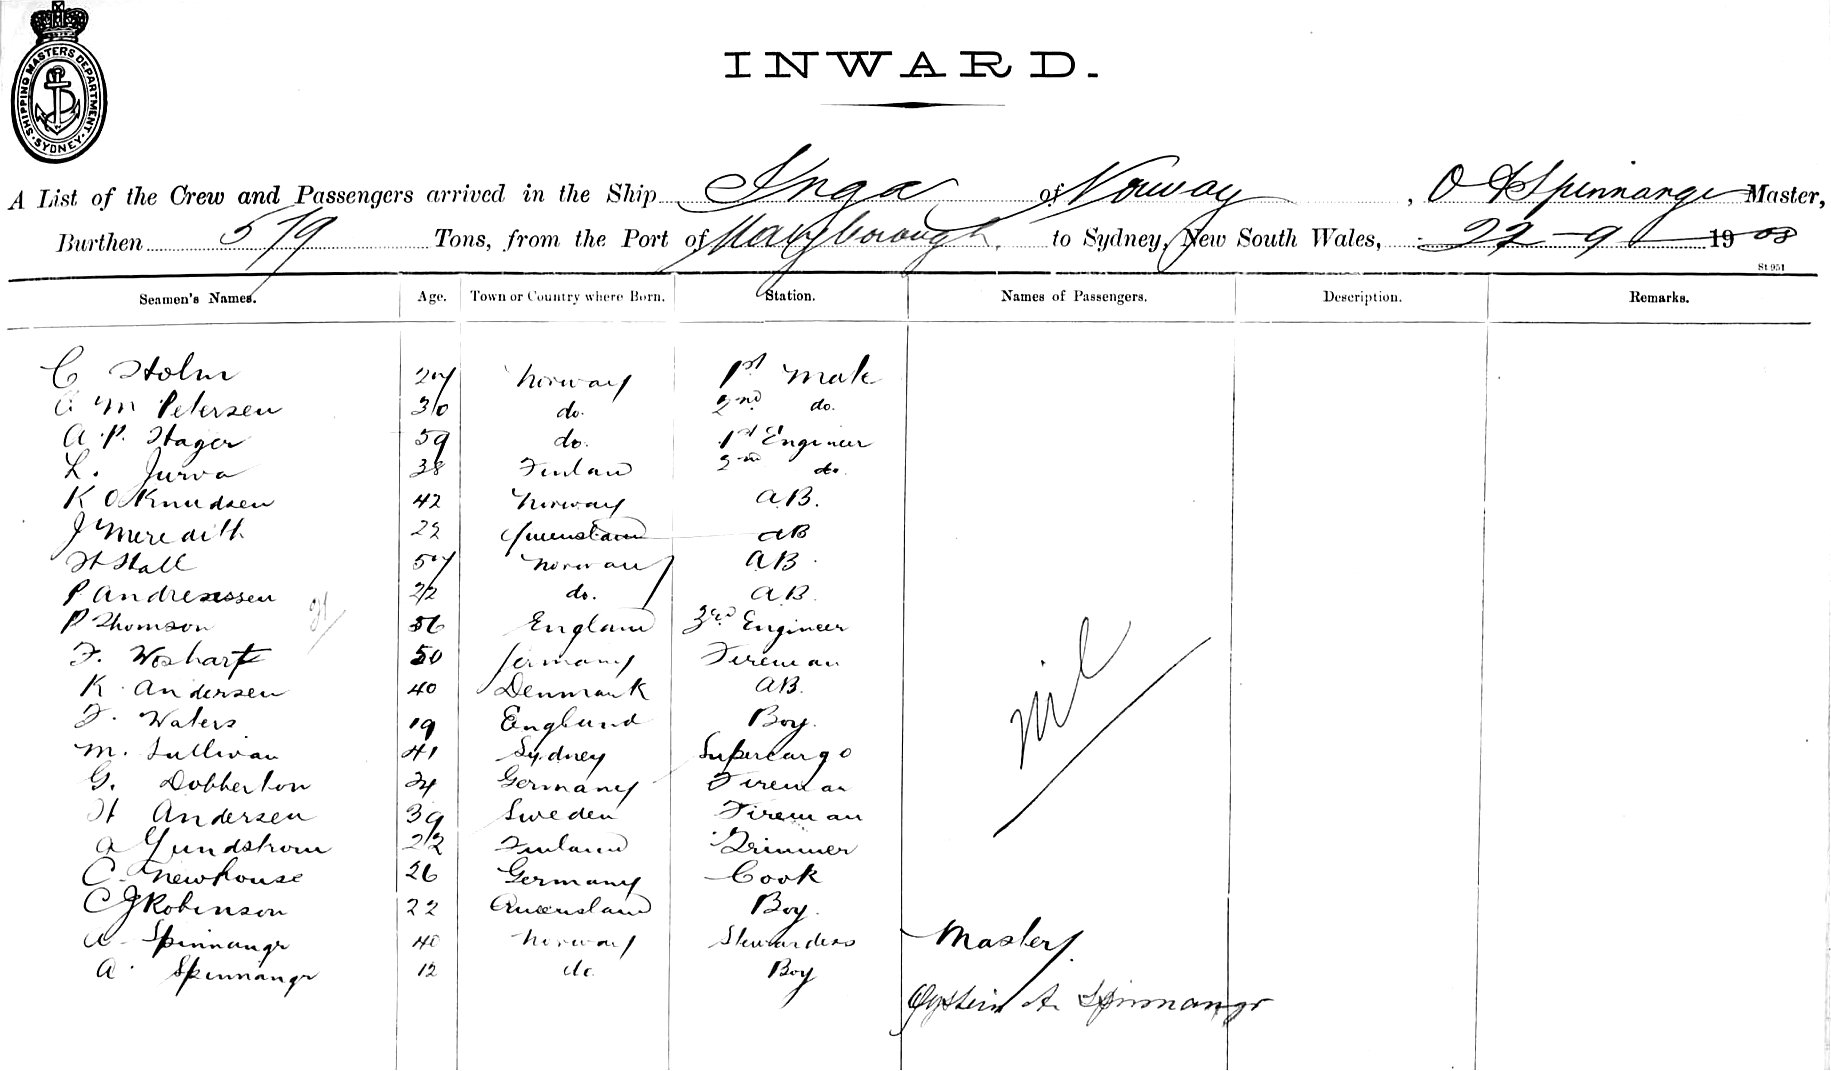 SHIPPING MASTERS DEPARTMENT
SYDNEY
INWARD.
A List of the Crew and Passengers arrived in the Ship Inga of Norway, O A Spinnangr Master,
Burthen 579 Tons, from the Port of Maryborough to Sydney, New South Wales, 22-9-1908
St 951
Seamen's Names. Age. Town or Country where Born. Station. Names of Passengers. Description. Remarks.
C Holm 27 Norway 1st Mate
C M Petersen 30 do. 2nd do.
A. P. Hager 59 do. 1st Engineer
L. Jurva 38 Finland 2nd do.
K O Knudsen 42 Norway A.B.
J Meredith 22 Queensland AB
H Hall 57 Norway A.B.
P Andreassen 22 do. A.B.
P Thomson 56 England 3rd Engineer
F. Wosharf 50 Germany Fireman
K. Andersen 40 Denmark AB.
F. Waters 19 England Boy.
M. Sullivan 41 Sydney Supercargo
G. Dobberton 24 Germany Fireman
H Andersen 39 Sweden Fireman
A Lundstrom 22 Finland Trimmer
C. Newhouse 26 Germany Cook
C J Robinson 22 Queensland Boy.
A. Spinnangr 40 Norway Stewardess
A. Spinnangr 12 do. Boy
Nil
Master
Oystein A. Spinnangr